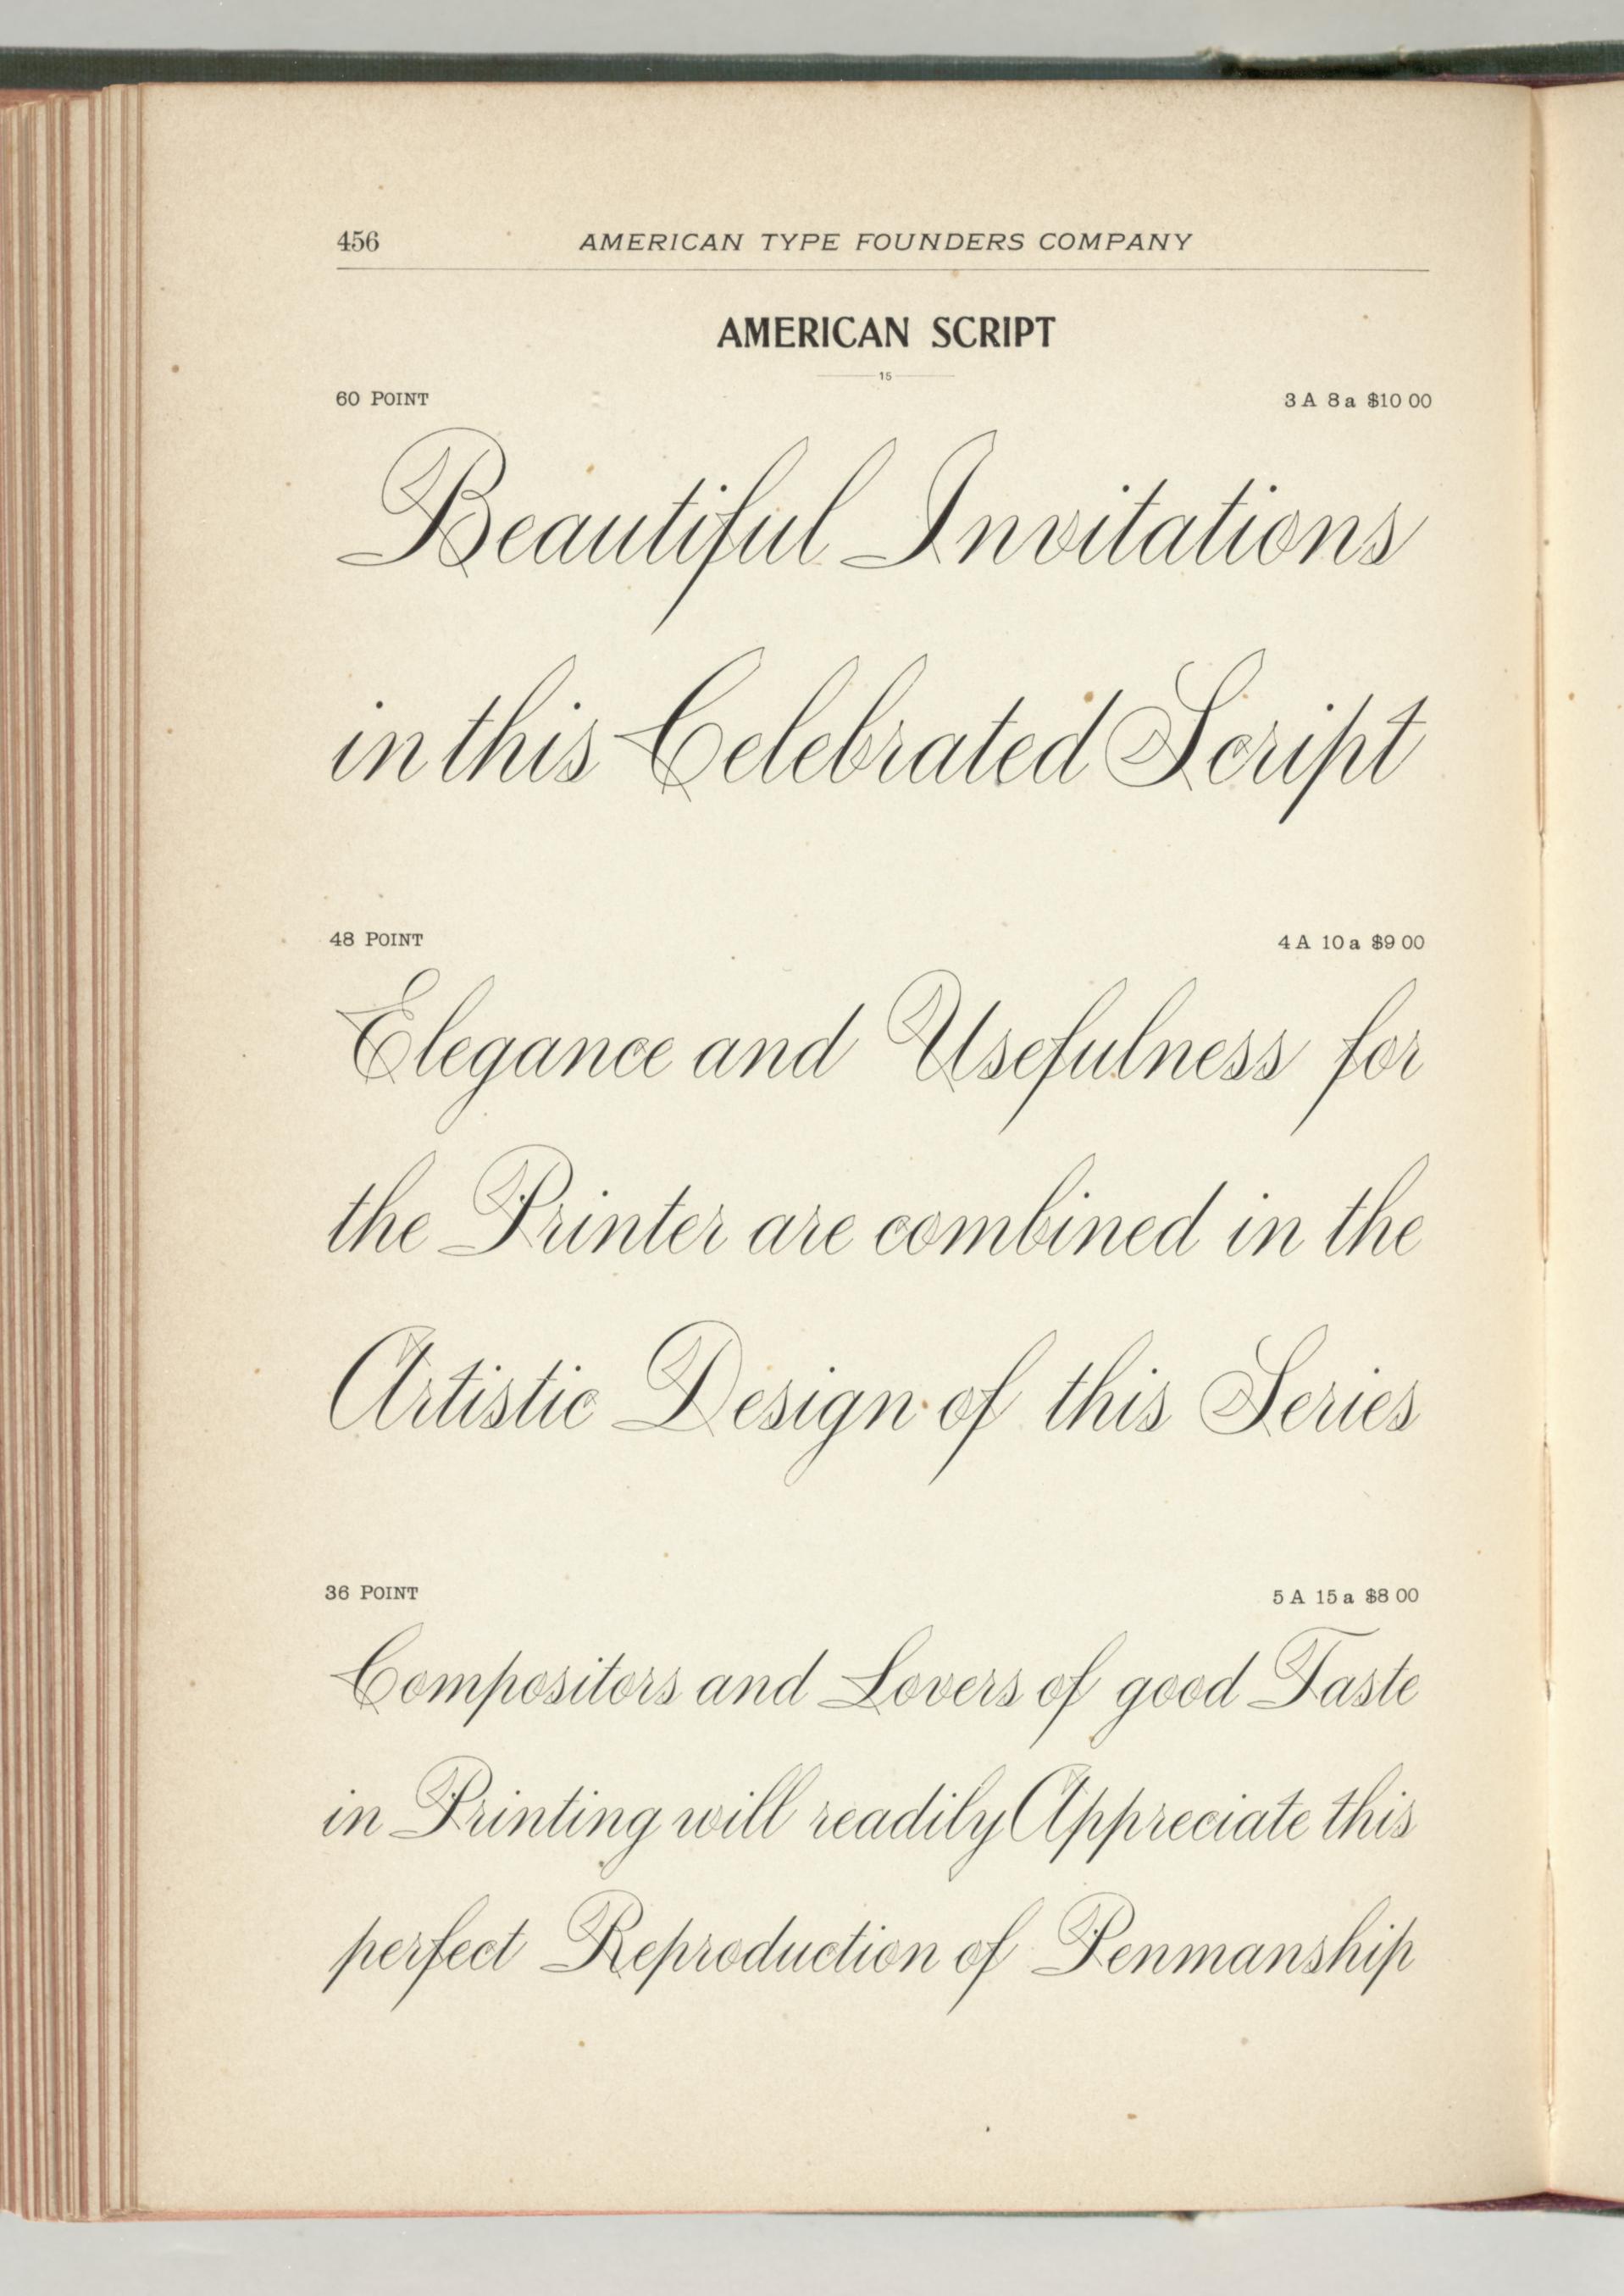 456 AMERICAN TYPE FOUNDERS COMPANY
AMERICAN SCRIPT
15
60 POINT 3 A 8 a $10 00
Beautiful Invitations
in this Celebrated Script
48 POINT 4 A 10 a $9 00
Elegance and Usefulness for
the Printer are combined in the
Artistic Design of this Series
36 POINT 5 A 15 a $8 00
Compositors and Lovers of good Taste
in Printing will readily Appreciate this
perfect Reproduction of Penmanship